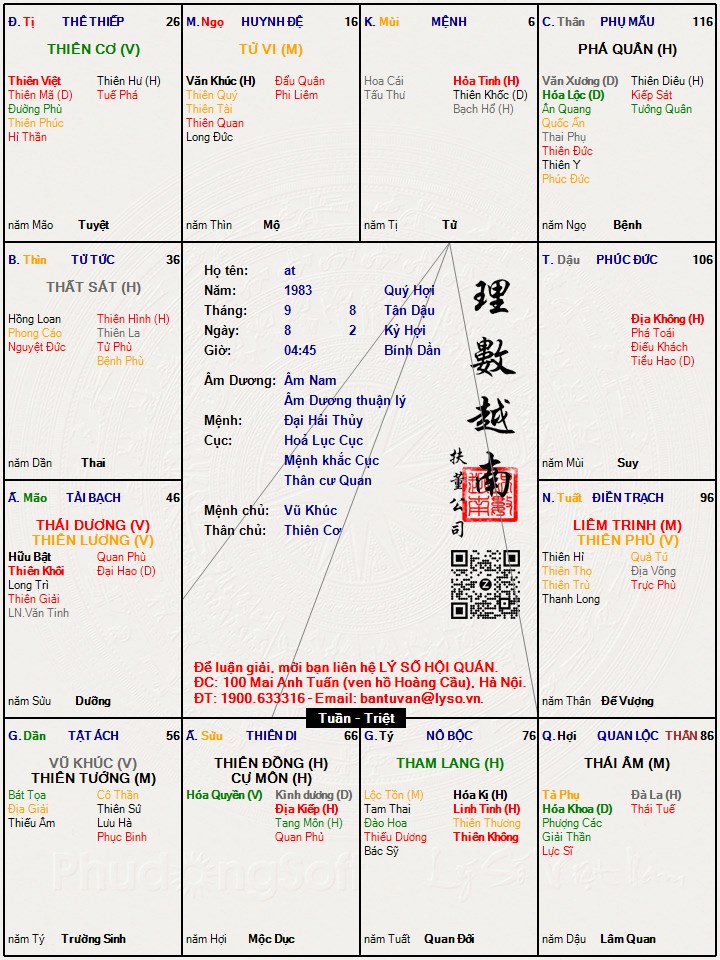 Đ. Tị THÊ THIẾP 26
THIÊN CƠ (V)
Thiên Việt
Thiên Mã (D)
Đường Phù
Thiên Phúc
Hỉ Thần
Thiên Hư (H)
Tuế Phá
năm Mão Tuyệt
M. Ngọ HUYNH ĐỆ 16
TỬ VI (M)
Văn Khúc (H)
Thiên Quý
Thiên Tài
Thiên Quan
Long Đức
Đẩu Quân
Phi Liêm
năm Thìn Mộ
K. Mùi MỆNH 6
Hoa Cái
Tấu Thư
Hỏa Tinh (H)
Thiên Khốc (D)
Bạch Hổ (H)
năm Tị Tử
C. Thân PHỤ MẪU 116
PHÁ QUÂN (H)
Văn Xương (D)
Hóa Lộc (D)
Ân Quang
Quốc Ấn
Thai Phụ
Thiên Đức
Thiên Y
Phúc Đức
Thiên Diêu (H)
Kiếp Sát
Tướng Quân
năm Ngọ Bệnh
B. Thìn TỬ TỨC 36
THẤT SÁT (H)
Hồng Loan
Phong Cáo
Nguyệt Đức
Thiên Hình (H)
Thiên La
Tử Phù
Bệnh Phù
năm Dần Thai
Họ tên: at
Năm: 1983 Quý Hợi
Tháng: 9 8 Tân Dậu
Ngày: 8 2 Kỷ Hợi
Giờ: 04:45 Bính Dần
Âm Dương: Âm Nam
Âm Dương thuận lý
Mệnh: Đại Hải Thủy
Cục: Hoả Lục Cục
Mệnh khắc Cục
Thân cư Quan
Mệnh chủ: Vũ Khúc
Thân chủ: Thiên Cơ
理數越南
扶董公司
T. Dậu PHÚC ĐỨC 106
Địa Không (H)
Phá Toái
Điếu Khách
Tiểu Hao (D)
năm Mùi Suy
Ấ. Mão TÀI BẠCH 46
THÁI DƯƠNG (V)
THIÊN LƯƠNG (V)
Hữu Bật
Thiên Khôi
Long Trì
Thiên Giải
LN.Văn Tinh
Quan Phù
Đại Hao (D)
năm Sửu Dưỡng
N. Tuất ĐIỀN TRẠCH 96
LIÊM TRINH (M)
THIÊN PHỦ (V)
Thiên Hỉ
Thiên Thọ
Thiên Trù
Thanh Long
Quả Tú
Địa Võng
Trực Phù
năm Thân Đế Vượng
Để luận giải, mời bạn liên hệ LÝ SỐ HỘI QUÁN.
ĐC: 100 Mai Anh Tuấn (ven hồ Hoàng Cầu), Hà Nội.
ĐT: 1900.633316 - Email: bantuvan@lyso.vn.
Tuần - Triệt
G. Dần TẬT ÁCH 56
VŨ KHÚC (V)
THIÊN TƯỚNG (M)
Bát Tọa
Địa Giải
Thiếu Âm
Cô Thần
Thiên Sứ
Lưu Hà
Phục Binh
năm Tý Trường Sinh
Ấ. Sửu THIÊN DI 66
THIÊN ĐỒNG (H)
CỰ MÔN (H)
Hóa Quyền (V)
Kình dương (D)
Địa Kiếp (H)
Tang Môn (H)
Quan Phủ
năm Hợi Mộc Dục
G. Tý NÔ BỘC 76
THAM LANG (H)
Lộc Tồn (M)
Tam Thai
Đào Hoa
Thiếu Dương
Bác Sỹ
Hóa Kị (H)
Linh Tinh (H)
Thiên Thương
Thiên Không
năm Tuất Quan Đới
Q. Hợi QUAN LỘC THÂN 86
THÁI ÂM (M)
Tả Phụ
Hóa Khoa (D)
Phượng Các
Giải Thần
Lực Sĩ
Đà La (H)
Thái Tuế
năm Dậu Lâm Quan